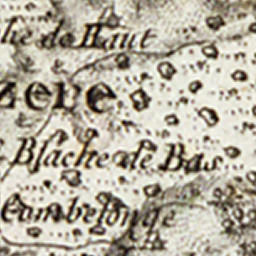 he de Haut
zere
Blache de Bas
Combesonge